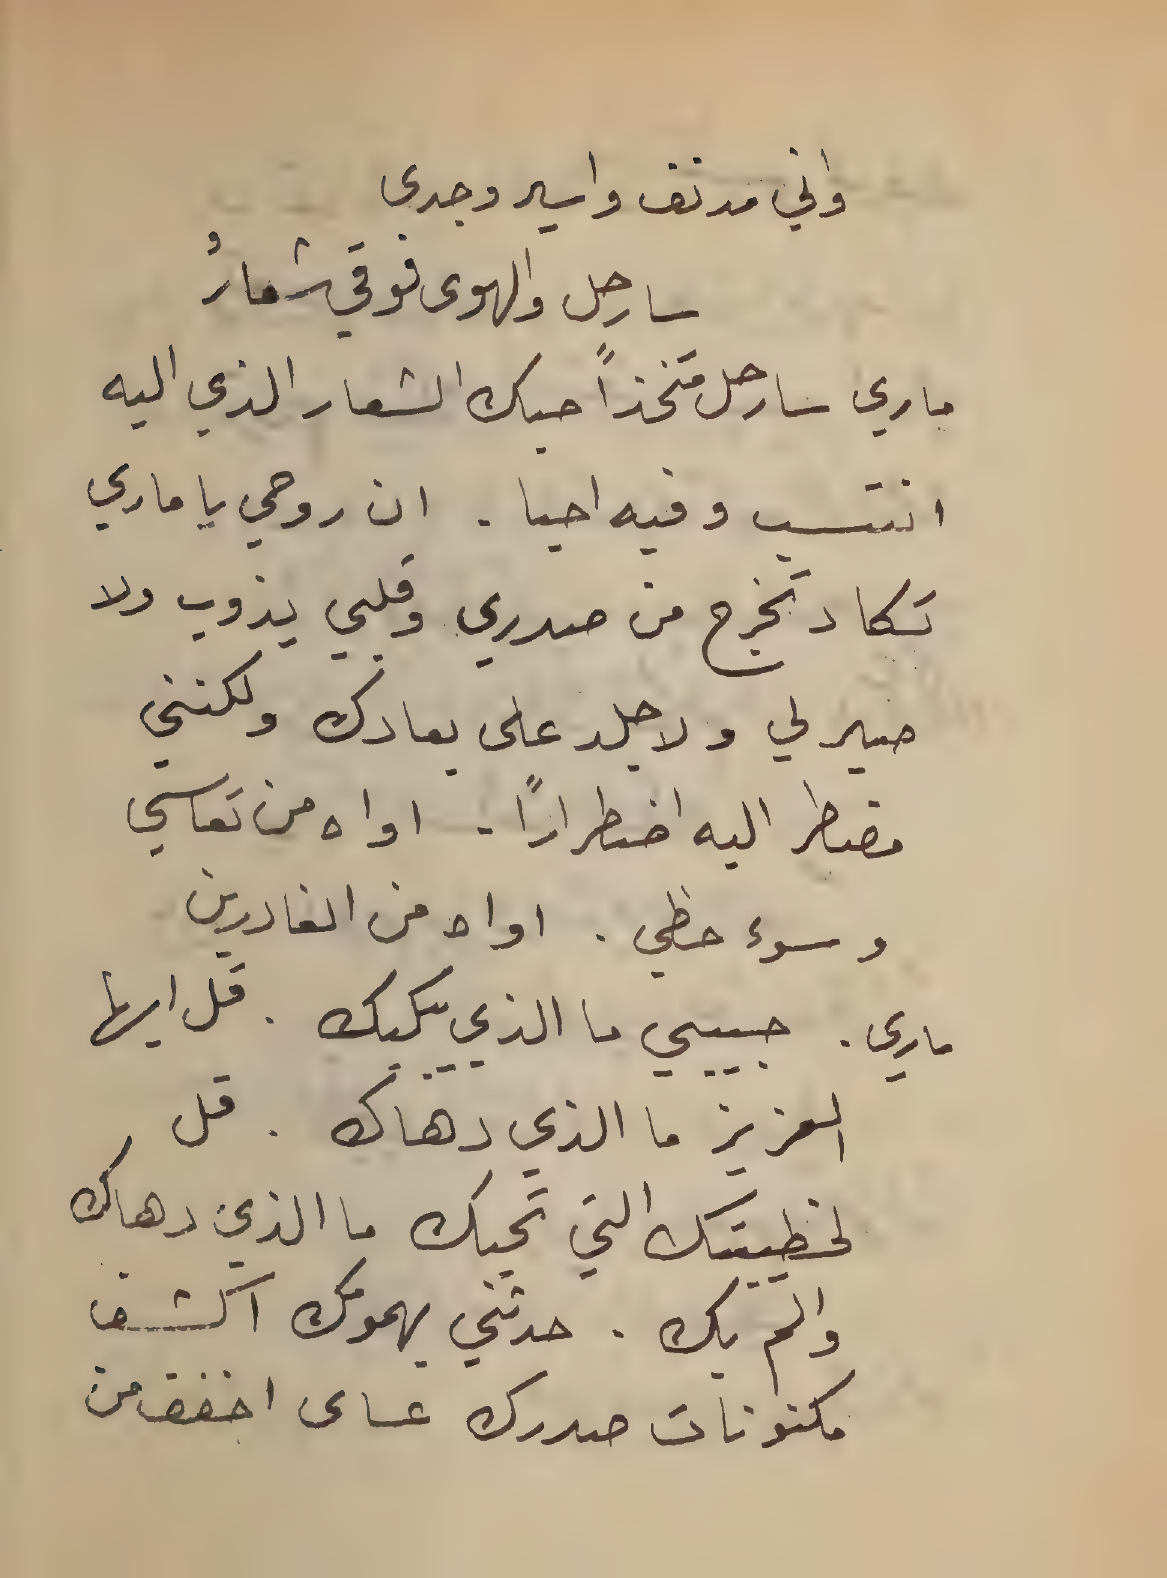 واني مدنف واسير وجدي
سارحل والهوى فوقي شعارُ
ماري سارحل متخذاً حبك الشعار الذي اليه
انتسب وفيه احيا . ان روحي يا ماري
تكاد تخرج من صدري وقلبي يذوب ولا
صبر لي ولا جلد على بعادك ولكنني
مضطر اليه اضطرارًا - اواه من تعاستي
وسوء حظي . اواه من الغادرين
ماري . حبيبي ما الذي يبكيك . قل ايها
العزيز ما الذي دهاك . قل
لخطيبتك التي تحبك ما الذي دهاك
والم بك . حدثني بهمومك اكشف
مكنونات صدرك عساى اخفف من